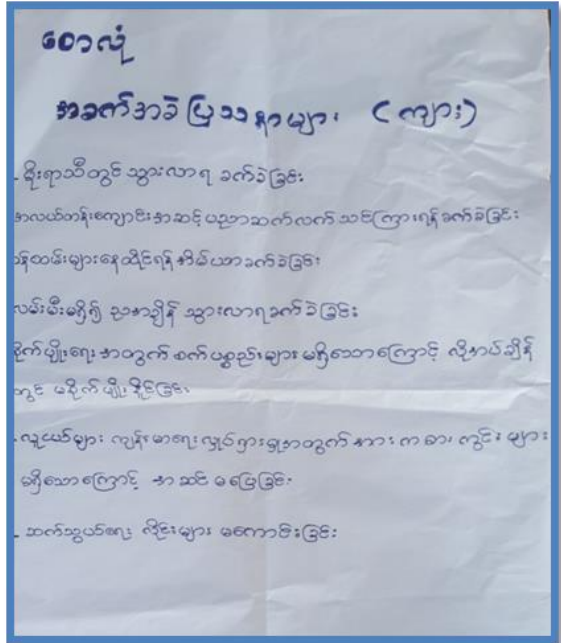 တောလုံ
အခက်အခဲ ပြဿနာများ (ကျား)
- မိုးရာသီတွင် သွားလာရ ခက်ခဲခြင်း
အလယ်တန်းကျောင်းအဆင့် ပညာဆက်လက် သင်ကြားရန် ခက်ခဲခြင်း
ဝန်ထမ်းများနေထိုင်ရန် အိမ်ယာခက်ခဲခြင်း
လမ်းမီးမရှိ၍ ညအချိန် သွားလာရခက်ခဲခြင်း
စိုက်ပျိုးရေးအတွက် စက်ပစ္စည်းများ မရှိသောကြောင့် လိုအပ်ချိန်
တွင် မစိုက်ပျိုးနိုင်ခြင်း
- လူငယ်များ ကျန်းမာရေးလှုပ်ရှားမှုအတွက် အားကစားကွင်းများ
မရှိသောကြောင့် အဆင်မပြေခြင်း
- ဆက်သွယ်ရေး လိုင်းများ မကောင်းခြင်း